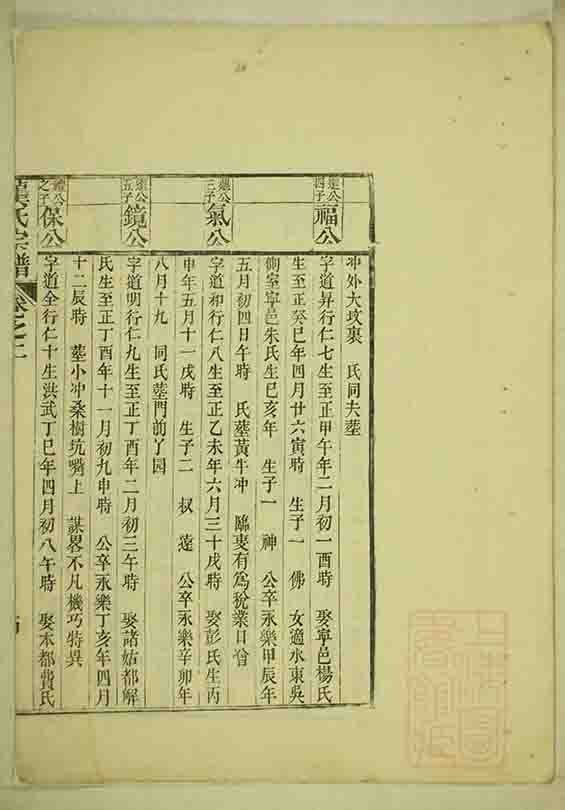 冲外大坟裏 氏同夫塟
遠公四子 福公
字道昇行仁七生至正甲午年二月初一酉時 娶寧邑楊氏
生至正癸巳年四月廿六寅時 生子一 佛 女適水東吳
側室寧邑朱氏生己亥年 生子一 神 公卒永樂甲辰年
五月初四日午時 氏塟黃牛冲 臨叟有為稅業日曾
遠公三子 氣公
字道和行仁八生至正乙未年六月三十戌時 娶彭氏生丙
申年五月十一戌時 生子二 叔 遠 公卒永樂辛卯年
八月十九 同氏塟門前丫园
遠公五子 鏡公
字道明行仁九生至正丁酉年二月初三午時 娶諸姑都解
氏生至正丁酉年十一月初九申時 公卒永樂丁亥年四月
十二辰時 塟小冲桑樹坑嘴上 謀畧不凡機巧特異
公之子 保公
字道全行仁十生洪武丁巳年四月初八午時 娶本都費氏
氏宗譜 卷之二